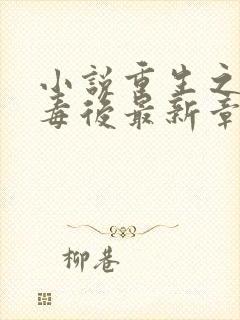 小説重生之
毒後最新章
柳巷